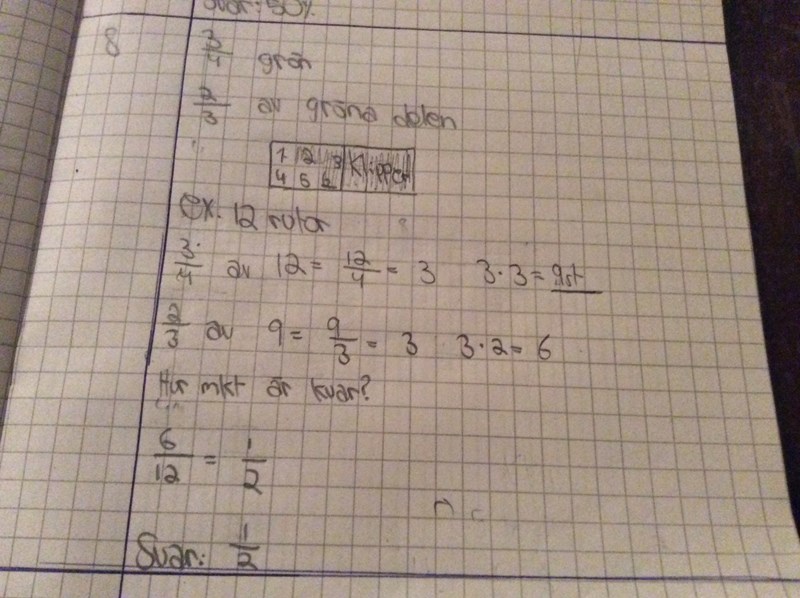 Svar: 50%
8
3/4 grön
2/3 av gröna delen
1 2 3 Klipper
4 5 6
ex. 12 rutor
3/4 av 12 = 12/4 = 3 3·3 = 9st
2/3 av 9 = 9/3 = 3 3·2 = 6
Hur mkt är kvar?
6/12 = 1/2
Svar: 1/2